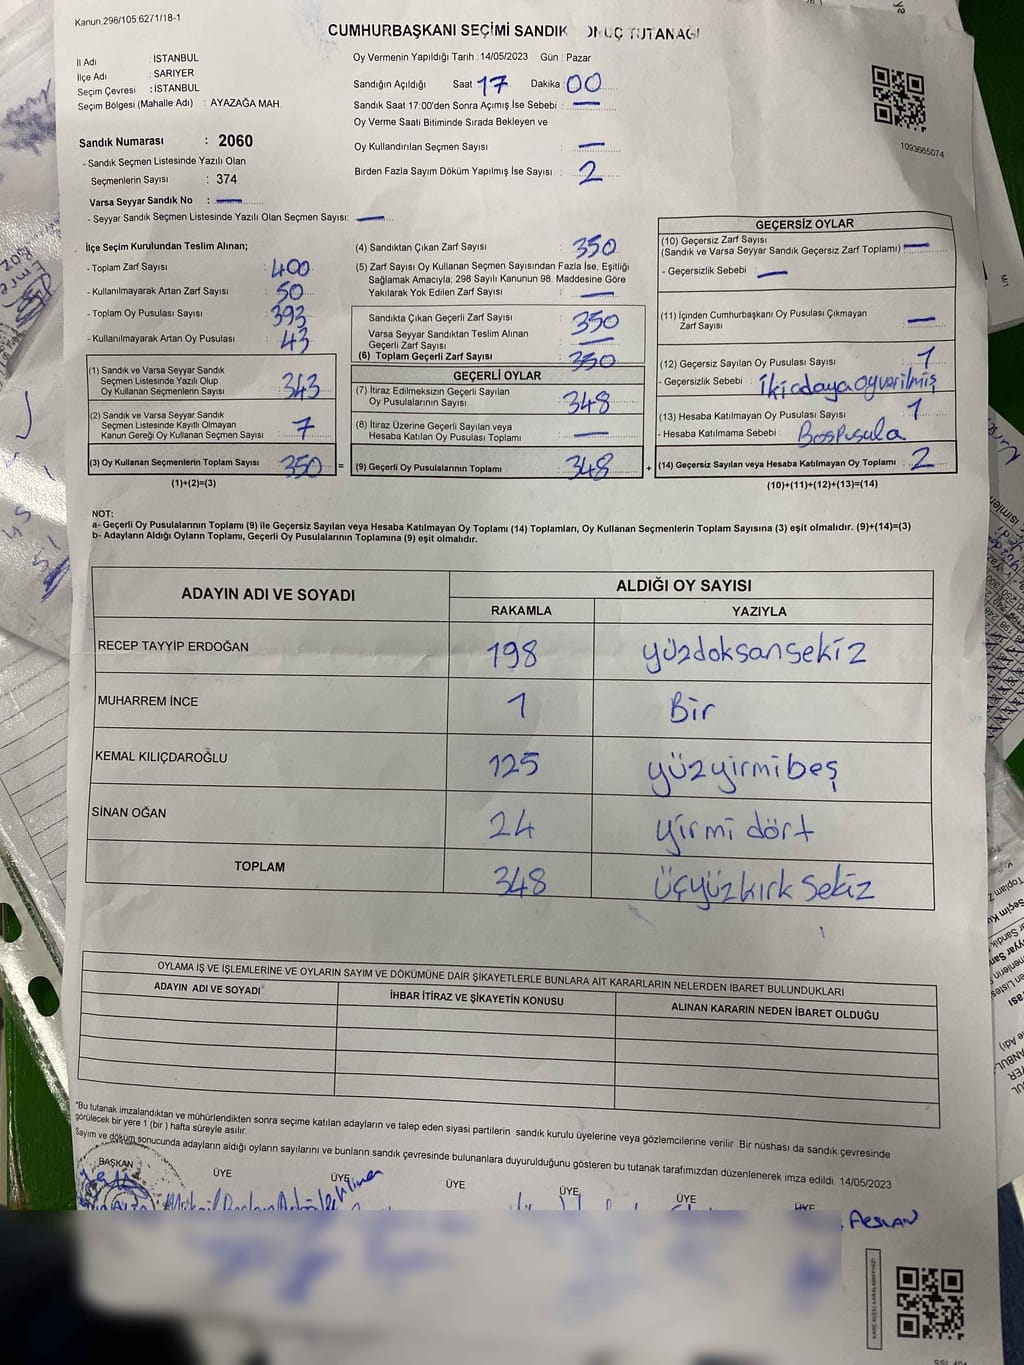 Kanun.298/105,6271/18-1
CUMHURBAŞKANI SEÇİMİ SANDIK TUTANAĞI
İl Adı : İSTANBUL
İlçe Adı : SARIYER
Seçim Çevresi : İSTANBUL
Seçim Bölgesi (Mahalle Adı) : AYAZAĞA MAH.
Oy Vermenin Yapıldığı Tarih : 14/05/2023 Gün : Pazar
Sandığın Açıldığı Saat 17 Dakika 00
Sandık Saat 17:00'den Sonra Açımış İse Sebebi : —
Oy Verme Saati Bitiminde Sırada Bekleyen ve
Oy Kullandırılan Seçmen Sayısı : —
Birden Fazla Sayım Döküm Yapılmış İse Sayısı : 2
1093665074
Sandık Numarası : 2060
- Sandık Seçmen Listesinde Yazılı Olan
Seçmenlerin Sayısı : 374
Varsa Seyyar Sandık No : —
- Seyyar Sandık Seçmen Listesinde Yazılı Olan Seçmen Sayısı: —
İlçe Seçim Kurulundan Teslim Alınan;
- Toplam Zarf Sayısı : 400
- Kullanılmayarak Artan Zarf Sayısı : 50
- Toplam Oy Pusulası Sayısı : 393
- Kullanılmayarak Artan Oy Pusulası : 43
(1) Sandık ve Varsa Seyyar Sandık
Seçmen Listesinde Yazılı Olup
Oy Kullanan Seçmenlerin Sayısı : 343
(2) Sandık ve Varsa Seyyar Sandık
Seçmen Listesinde Kayıtlı Olmayan
Kanun Gereği Oy Kullanan Seçmen Sayısı : 7
(3) Oy Kullanan Seçmenlerin Toplam Sayısı : 350 =
(1)+(2)=(3)
(4) Sandıktan Çıkan Zarf Sayısı : 350
(5) Zarf Sayısı Oy Kullanan Seçmen Sayısından Fazla İse, Eşitliği
Sağlamak Amacıyla, 298 Sayılı Kanunun 98. Maddesine Göre
Yakılarak Yok Edilen Zarf Sayısı : —
Sandıkta Çıkan Geçerli Zarf Sayısı : 350
Varsa Seyyar Sandıktan Teslim Alınan
Geçerli Zarf Sayısı : —
(6) Toplam Geçerli Zarf Sayısı : 350
GEÇERLİ OYLAR
(7) İtiraz Edilmeksizin Geçerli Sayılan
Oy Pusulalarının Sayısı : 348
(8) İtiraz Üzerine Geçerli Sayılan veya
Hesaba Katılan Oy Pusulası Toplamı : —
(9) Geçerli Oy Pusulalarının Toplamı : 348 +
GEÇERSİZ OYLAR
(10) Geçersiz Zarf Sayısı
(Sandık ve Varsa Seyyar Sandık Geçersiz Zarf Toplamı) : —
- Geçersizlik Sebebi : —
(11) İçinden Cumhurbaşkanı Oy Pusulası Çıkmayan
Zarf Sayısı : —
(12) Geçersiz Sayılan Oy Pusulası Sayısı : 1
- Geçersizlik Sebebi : İki adaya oy verilmiş
(13) Hesaba Katılmayan Oy Pusulası Sayısı : 1
- Hesaba Katılmama Sebebi : Boş Pusula
(14) Geçersiz Sayılan veya Hesaba Katılmayan Oy Toplamı : 2
(10)+(11)+(12)+(13)=(14)
NOT:
a- Geçerli Oy Pusulalarının Toplamı (9) ile Geçersiz Sayılan veya Hesaba Katılmayan Oy Toplamı (14) Toplamları, Oy Kullanan Seçmenlerin Toplam Sayısına (3) eşit olmalıdır. (9)+(14)=(3)
b- Adayların Aldığı Oyların Toplamı, Geçerli Oy Pusulalarının Toplamına (9) eşit olmalıdır.
ADAYIN ADI VE SOYADI
ALDIĞI OY SAYISI
RAKAMLA YAZIYLA
RECEP TAYYİP ERDOĞAN 198 yüzdoksansekiz
MUHARREM İNCE 1 Bir
KEMAL KILIÇDAROĞLU 125 yüzyirmibeş
SİNAN OĞAN 24 yirmi dört
TOPLAM 348 üçyüzkırk sekiz
OYLAMA İŞ VE İŞLEMLERİNE VE OYLARIN SAYIM VE DÖKÜMÜNE DAİR ŞİKAYETLERLE BUNLARA AİT KARARLARIN NELERDEN İBARET BULUNDUKLARI
ADAYIN ADI VE SOYADI İHBAR İTİRAZ VE ŞİKAYETİN KONUSU ALINAN KARARIN NEDEN İBARET OLDUĞU
"Bu tutanak imzalandıktan ve mühürlendikten sonra seçime katılan adayların ve talep eden siyasi partilerin sandık kurulu üyelerine veya gözlemcilerine verilir .Bir nüshası da sandık çevresinde
görülecek bir yere 1 (bir ) hafta süreyle asılır.
Sayım ve döküm sonucunda adayların aldığı oyların sayısını ve bunların sandık çevresinde bulunanlara duyurulduğunu gösteren bu tutanak tarafımızdan düzenlenerek imza edildi. 14/05/2023
BAŞKAN ÜYE ÜYE ÜYE ÜYE ÜYE ÜYE
ARSLAN